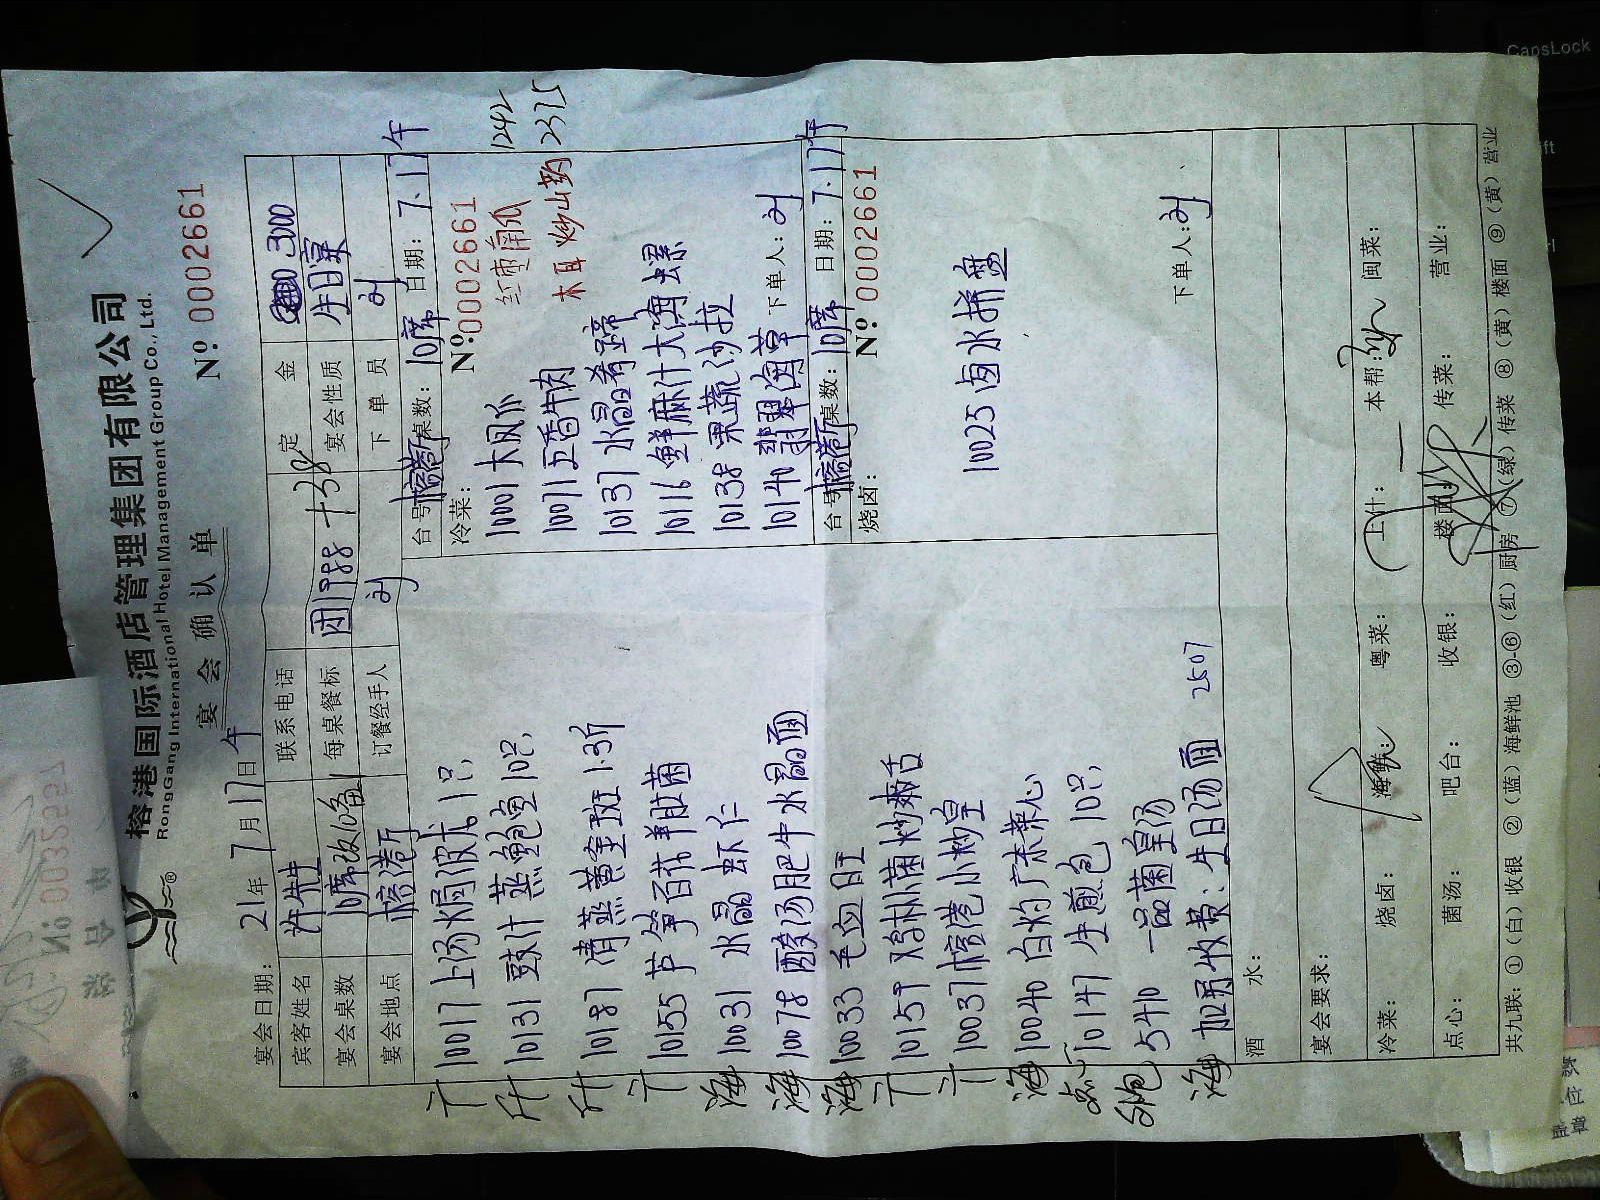 榕港国际酒店管理集团有限公司
RongGang International Hotel Management Group Co., Ltd.
宴会确认单
Nº 0002661
宴会日期: 21年 7月17日 午
宾客姓名 许先生 联系电话 定金 3000
宴会桌数 10席 每桌餐标 团1988 +38 宴会性质 生日宴
宴会地点 榕港厅 订餐经手人 刘 下单员 刘
10017 上汤焗波龙 1只
10131 豉汁蒸鲍鱼 10只
10187 清蒸黄金斑 1.3斤
10155 芦笋百花羊肚菌
10031 水晶虾仁
10078 酸汤肥牛水晶面
10033 毛血旺
10159 鸡枞菌炒爽舌
10037 榕港小炒皇
10040 白灼广东菜心
点心 10147 生煎包 10只
5410 一品菌皇汤
海 加另收费: 生日汤面 2507
台号: 榕港厅 桌数: 10席 日期: 7.17午
冷菜: Nº 0002661
10001 大风爪 红枣南瓜 1242
10011 五香牛肉 木耳炒山药 2315
10137 水晶肴蹄
10116 鲜麻汁大海螺
10138 果蔬沙拉
10140 翡翠海草 下单人: 刘
台号: 榕港厅 桌数: 10席 日期: 7.17午
烧卤: Nº 0002661
10025 卤水拼盘
下单人: 刘
酒水:
宴会要求:
冷菜: 烧卤: 海鲜: 粤菜: 上什: 本帮: 闽菜:
点心: 菌汤: 吧台: 收银: 楼面: 传菜: 营业:
共九联: ①(白)收银 ②(蓝)海鲜池 ③-⑥(红)厨房 ⑦(绿)传菜 ⑧(黄)楼面 ⑨(黄)营业
Nº 0032957
CapsLock